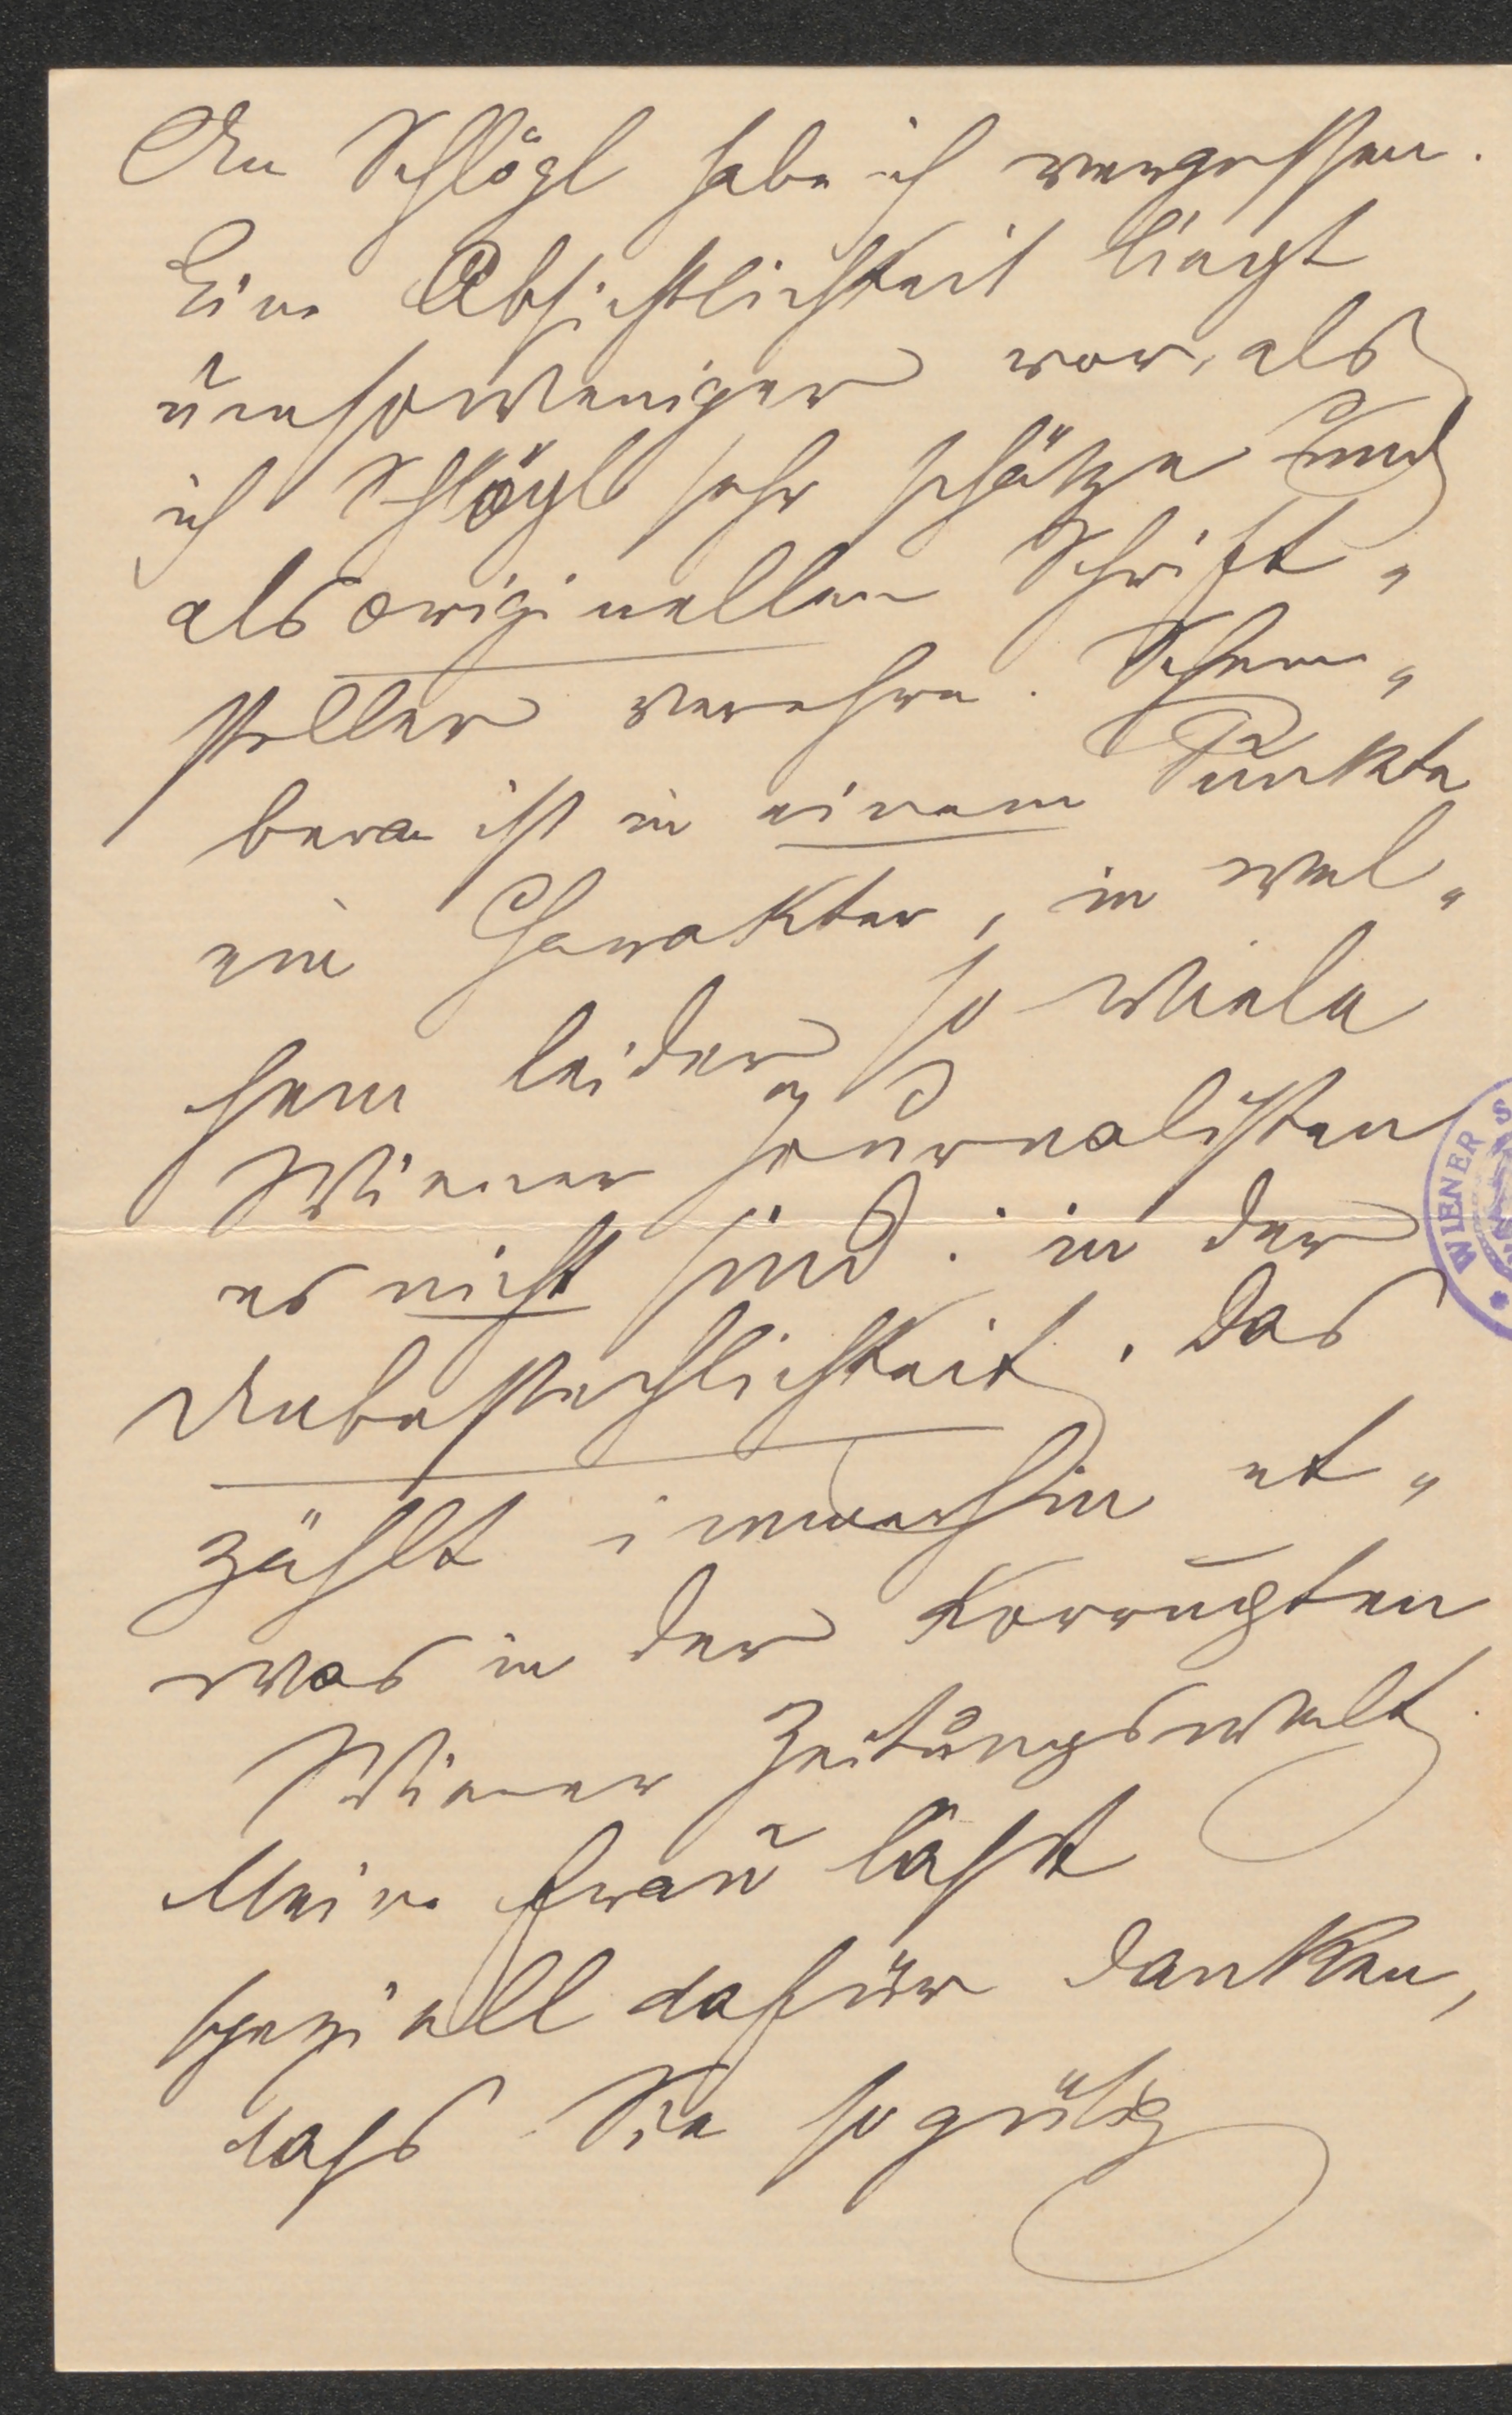 An Schlögl habe ich vergessen.
Eine Absichtlichkeit liegt
umsoweniger vor, als
ich Schlögl sehr schätze und
als originellen Schrift„
steller verehre. Schem„
bera ist in einem Punkte
ein Charakter, in wel„
chem leider so viele
Wiener Journalisten
es nicht sind: in der
Unbestechlichkeit. Das
zählt immerhin et„
was in der korrupten
Wiener Zeitungswelt.
Meine Frau läßt
speziell dafür danken,
dass Sie so gütig
WIENER S